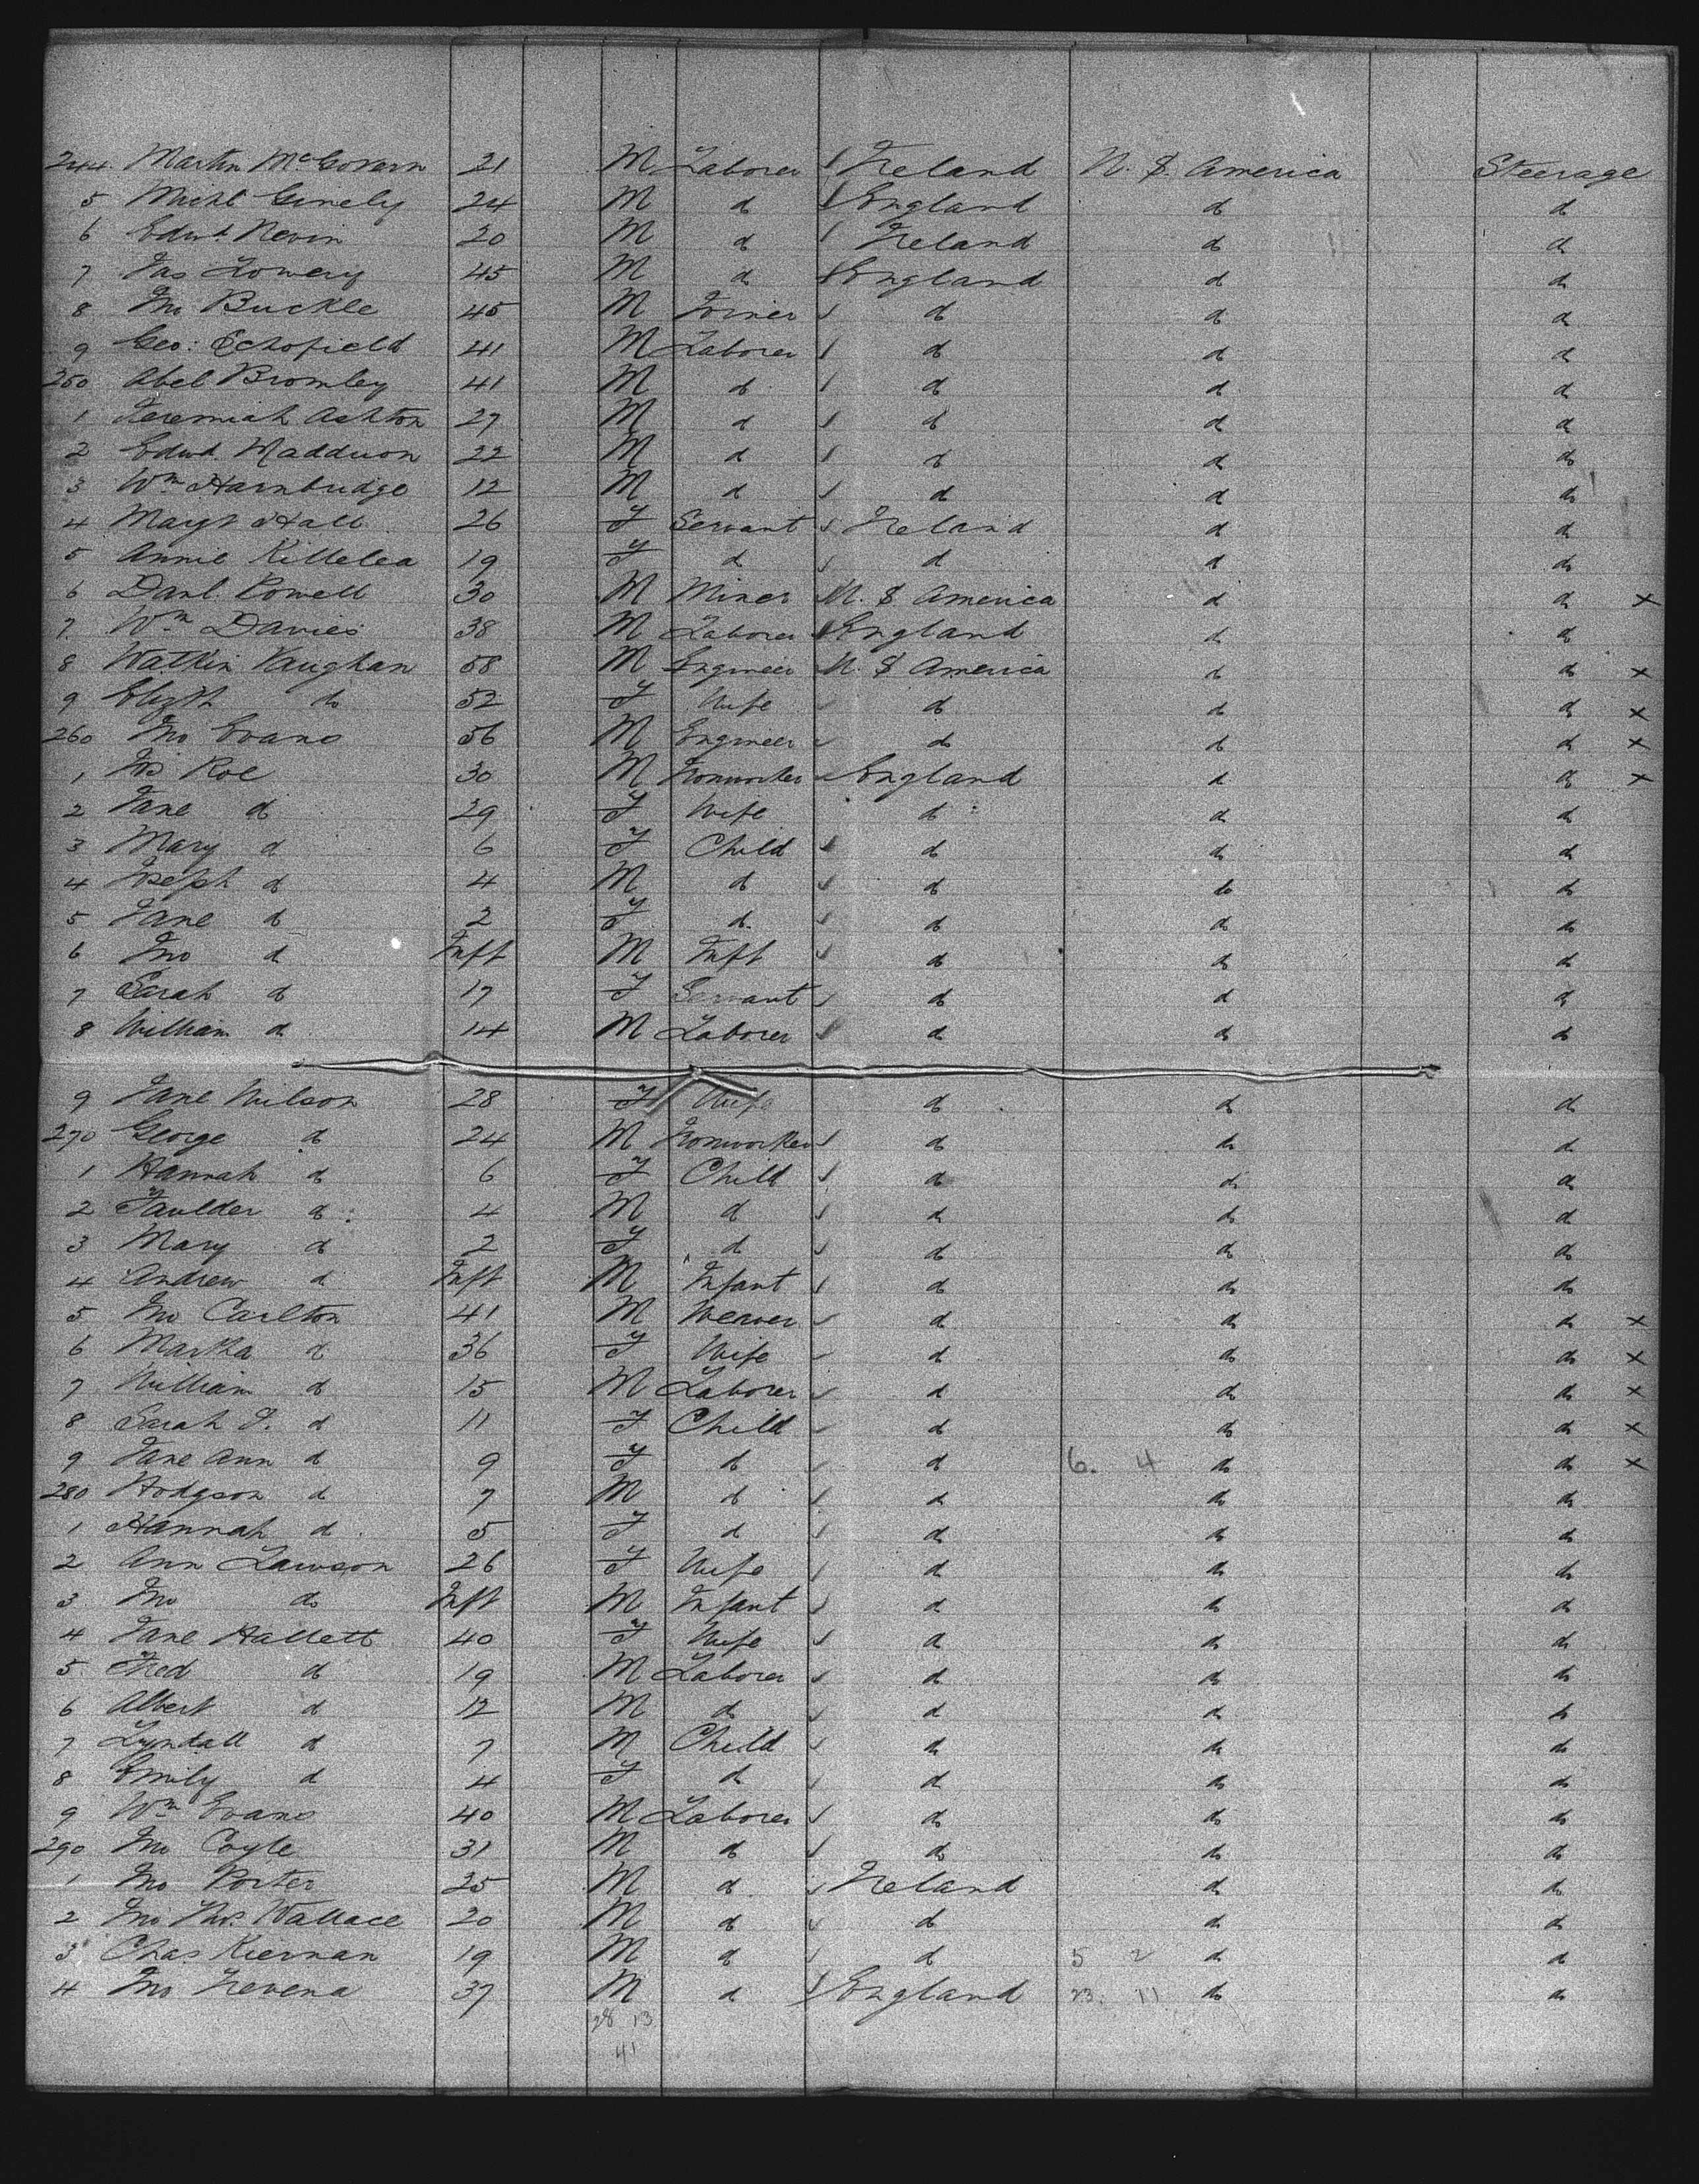 244. Martin McGovern 21 M Laborer Ireland U. S. America Steerage
5 Michl Ginely 24 M do England do do
6 Edwd. Nevin 20 M do Ireland do do
7 Jas Lowery 45 M do England do do
8 Jno Buckle 45 M Joiner do do do
9 Geo: Schofield 41 M Laborer do do do
250 Abel Bromley 41 M do do do do
1 Jeremiah Ashton 27 M do do do do
2 Edwd. Maddison 22 M do do do do
3 Wm Harnbridge 12 M do do do do
4 Margt Hall 26 F Servant Ireland do do
5 Annie Killelea 19 F do do do do
6 Danl. Powell 30 M Miner U. S America do do x
7. Wm Davies 38 M Laborer England do do
8 Watkin Vaughan 58 M Engineer U. S America do do x
9 Elizth do 52 F Wife do do do x
260 Jno Evans 56 M Engineer do do do x
1 Jos Roe 30 M Ironworker England do do x
2 Jane do 29 F Wife do do do
3 Mary do 6 F Child do do do
4 Joseph do 4 M do do do do
5 Jane do 2 F do do do do
6 Jno do Inft M Inft do do do
7 Sarah do 17 F Servant do do do
8 William do 14 M Laborer do do do
9 Jane Wilson 28 F Wife do do do
270 George do 24 M Ironworker do do do
1 Hannah do 6 F Child do do do
2 Faulder do 4 M do do do do
3 Mary do 2 F do do do do
4 Andrew do Inft M Infant do do do
5 Jno Carlton 41 M Weaver do do do x
6 Martha do 36 F Wife do do do x
7 William do 15 M Laborer do do do x
8 Sarah J. do 11 F Child do do do x
9 Jane Ann do 9 F do do 6. 4 do do x
280 Hodgson do 7 M do do do do
1 Hannah do 5 F do do do do
2 Ann Lawson 26 F Wife do do do
3 Jno do Inft M Infant do do do
4 Jane Hallett 40 F Wife do do do
5 Fred do 19 M Laborer do do do
6 Albert do 12 M do do do do
7 Lyndall do 7 M Child do do do
8 Emily do 4 F do do do do
9 Wm Evans 40 M Laborer do do do
290 Jno Coyle 31 M do do do do
1 Jno Porter 25 M do Ireland do do
2 Jno Thos. Wallace 20 M do do do do
3 Chas Kiernan 19 M do do 5 2 do do
4 Jno Trevena 37 M do England 23. 11 do do
28 13
41